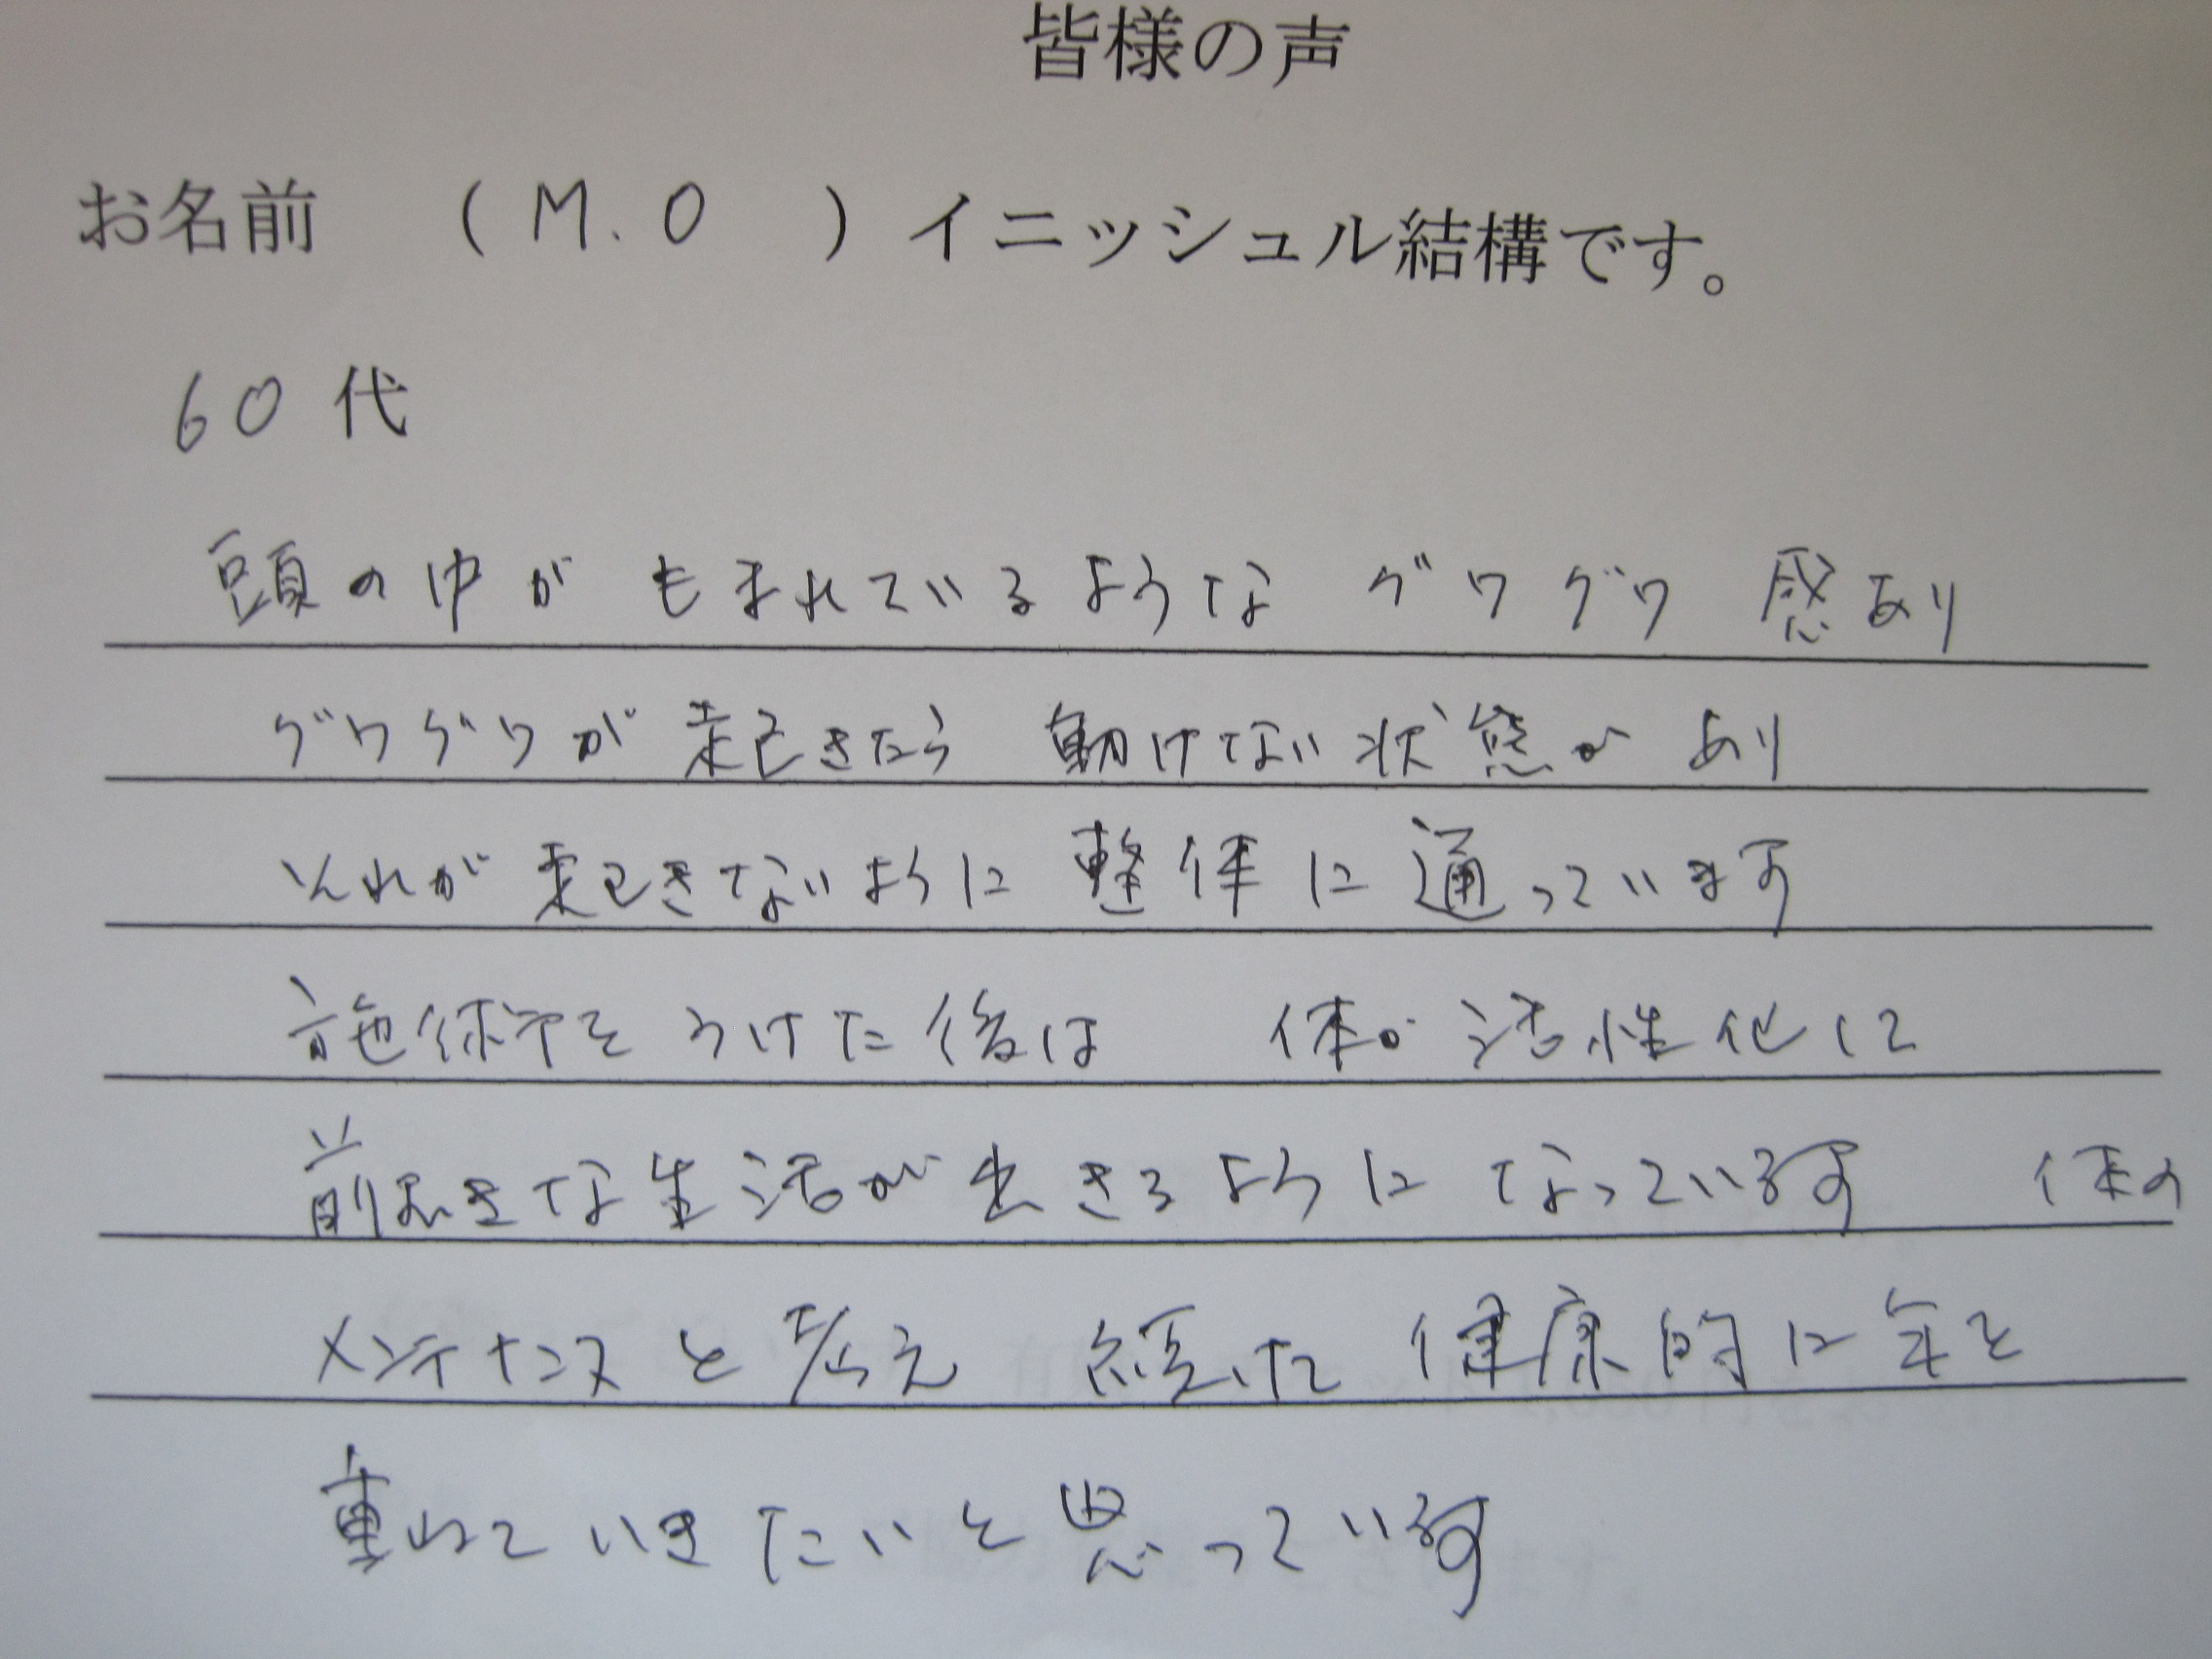 皆様の声
お名前 （ M.O ）イニッシュル結構です。
60代
頭の中が もまれているような グワグワ 感あり
グワグワが 起きたら 動けない状態が あり
それが 起きないように 整体に 通っています
施術を うけた後は 体が 活性化に
前向きな生活が 出きるように なっています 体の
メンテナンスと 考え 続けて 健康的に 年を
重ねていきたいと思っています